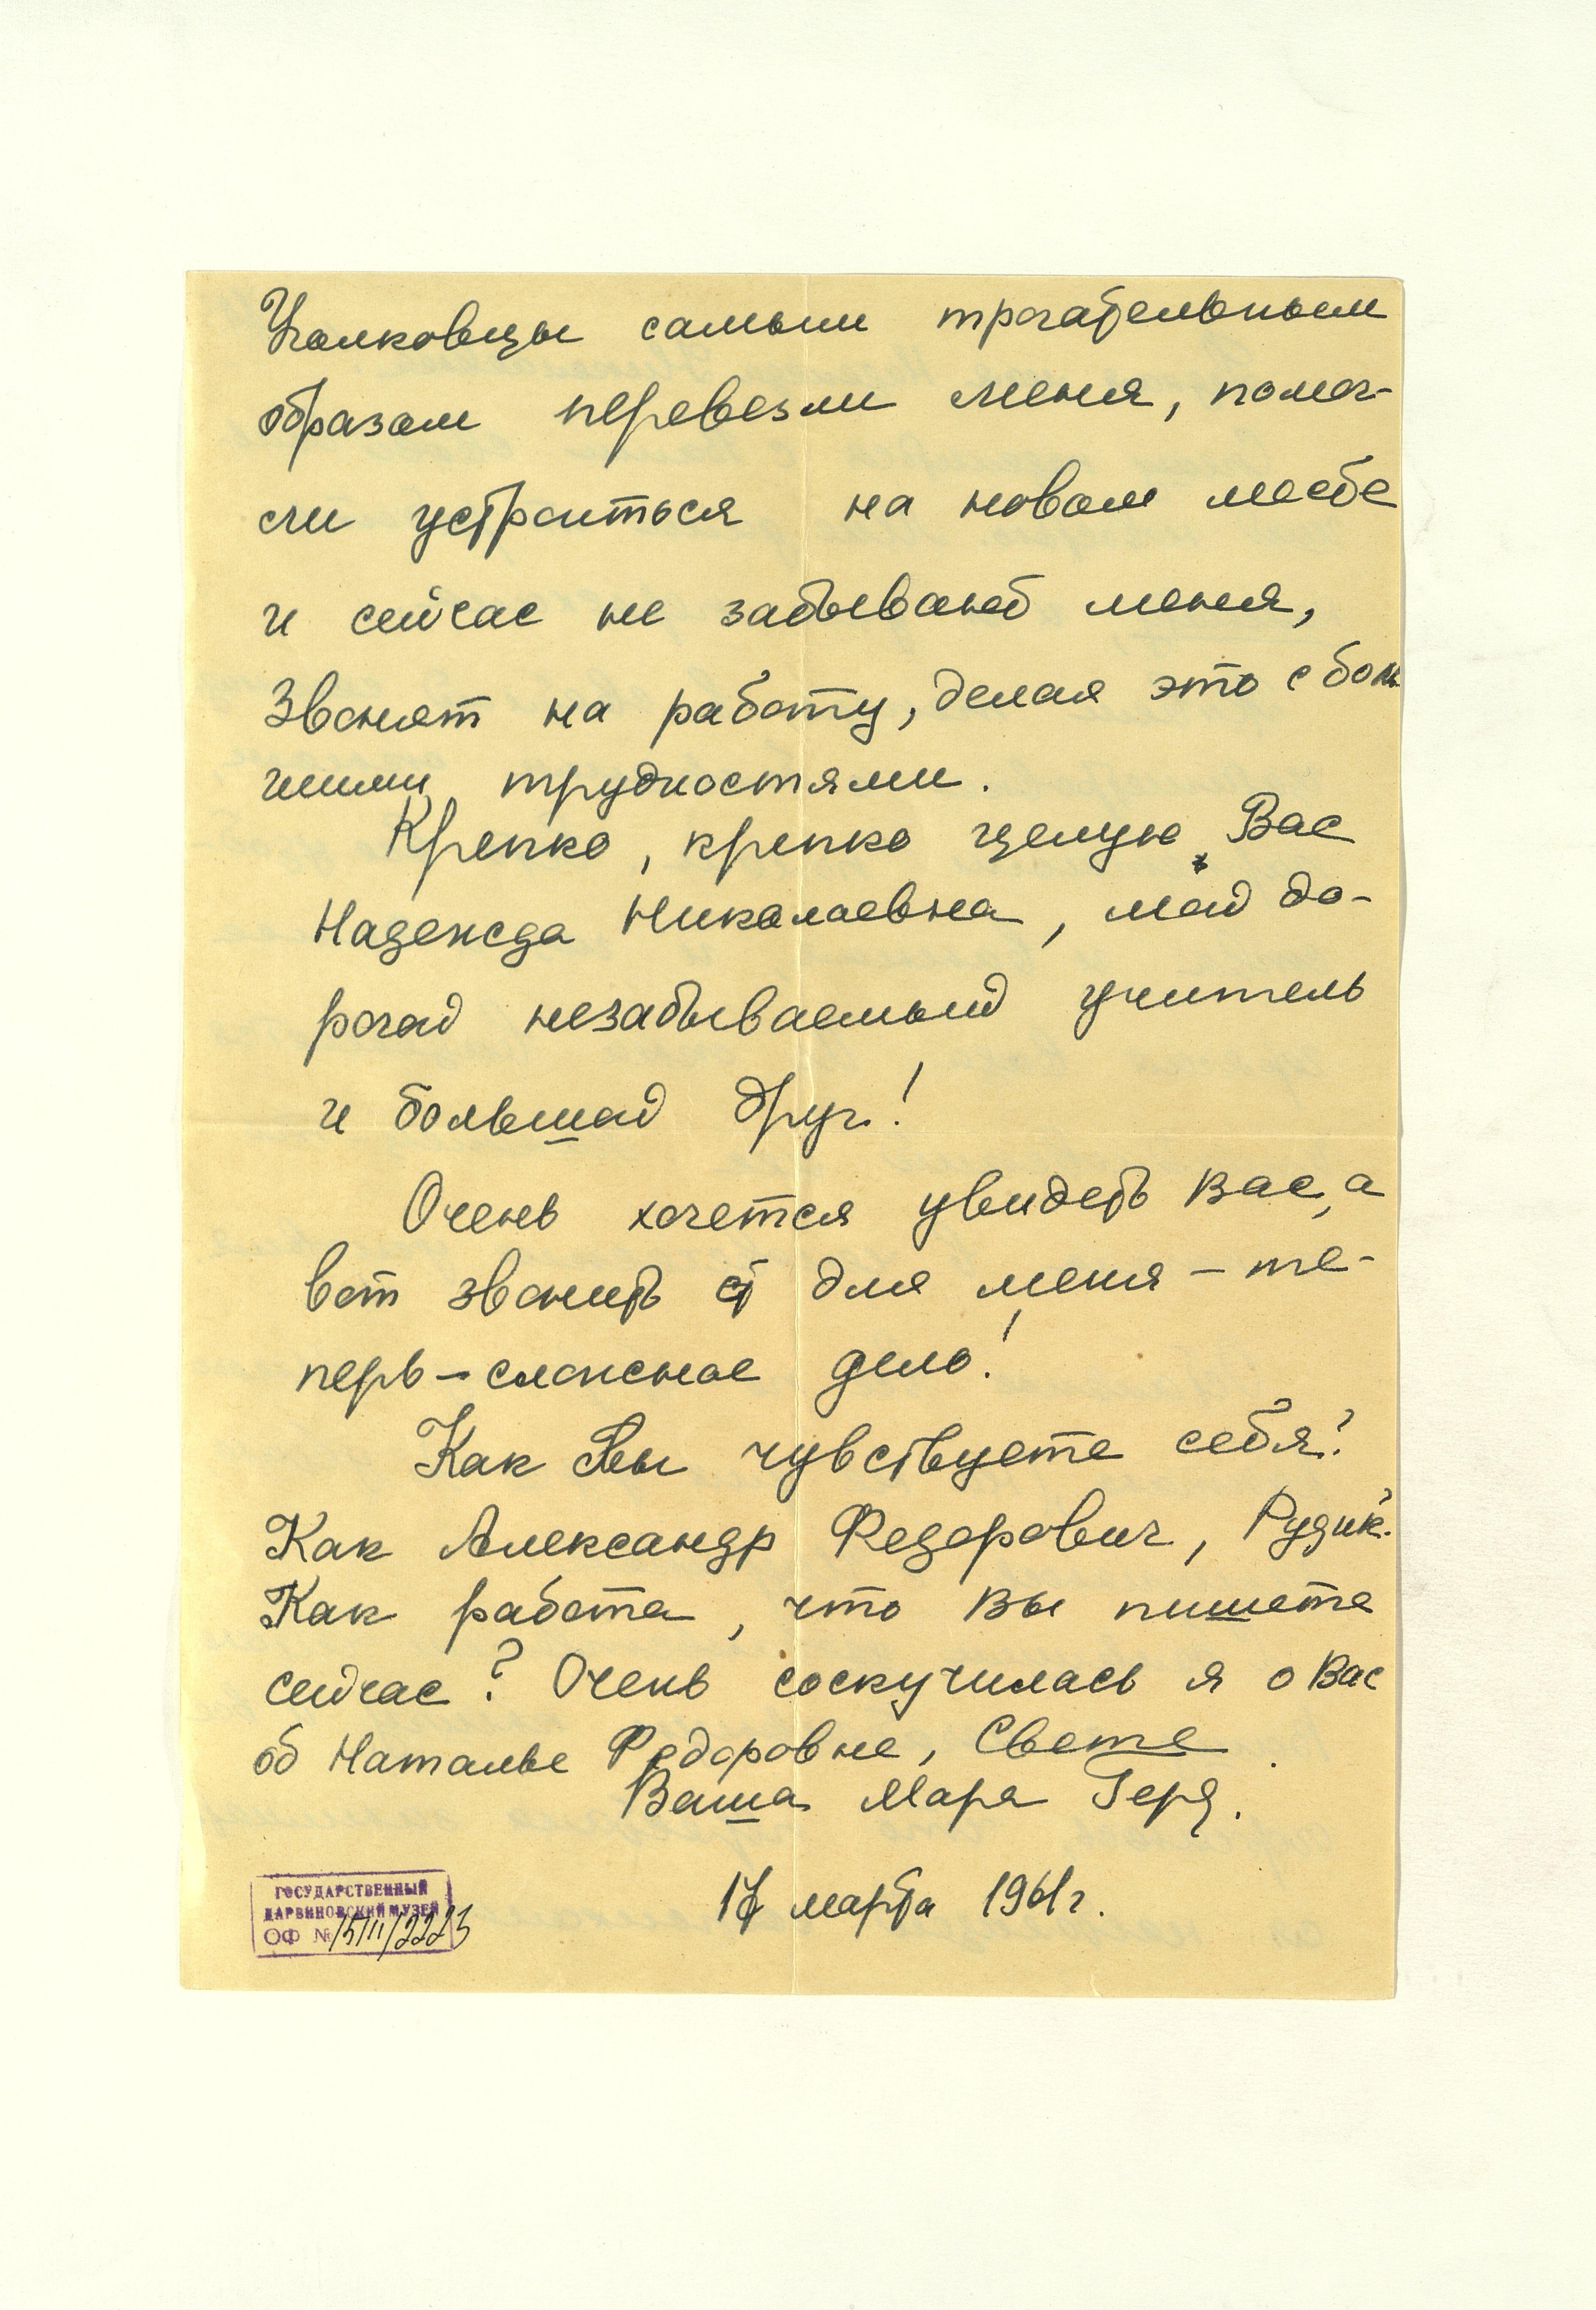 Уголковцы самым трогательным
образом перевезли меня, помог-
ли устроиться на новом месте
и сейчас не забывают меня,
Звонят на работу, делая это с боль
шими трудностями.
Крепко, крепко целую Вас
Надежда Николаевна, мой до-
рогой незабываемый учитель
и большой друг!
Очень хочется увидеть Вас, а
вот звонить для меня - те-
перь - сложное дело!
Как Вы чувствуете себя?
Как Александр Федорович, Рудик?
Как работа, что Вы пишете
сейчас? Очень соскучилась я о Вас
об Наталье Федоровне, Свете.
Ваша Мара Герд.
17 марта 1961г.
ГОСУДАРСТВЕННЫЙ
ДАРВИНОВСКИЙ МУЗЕЙ
ОФ №